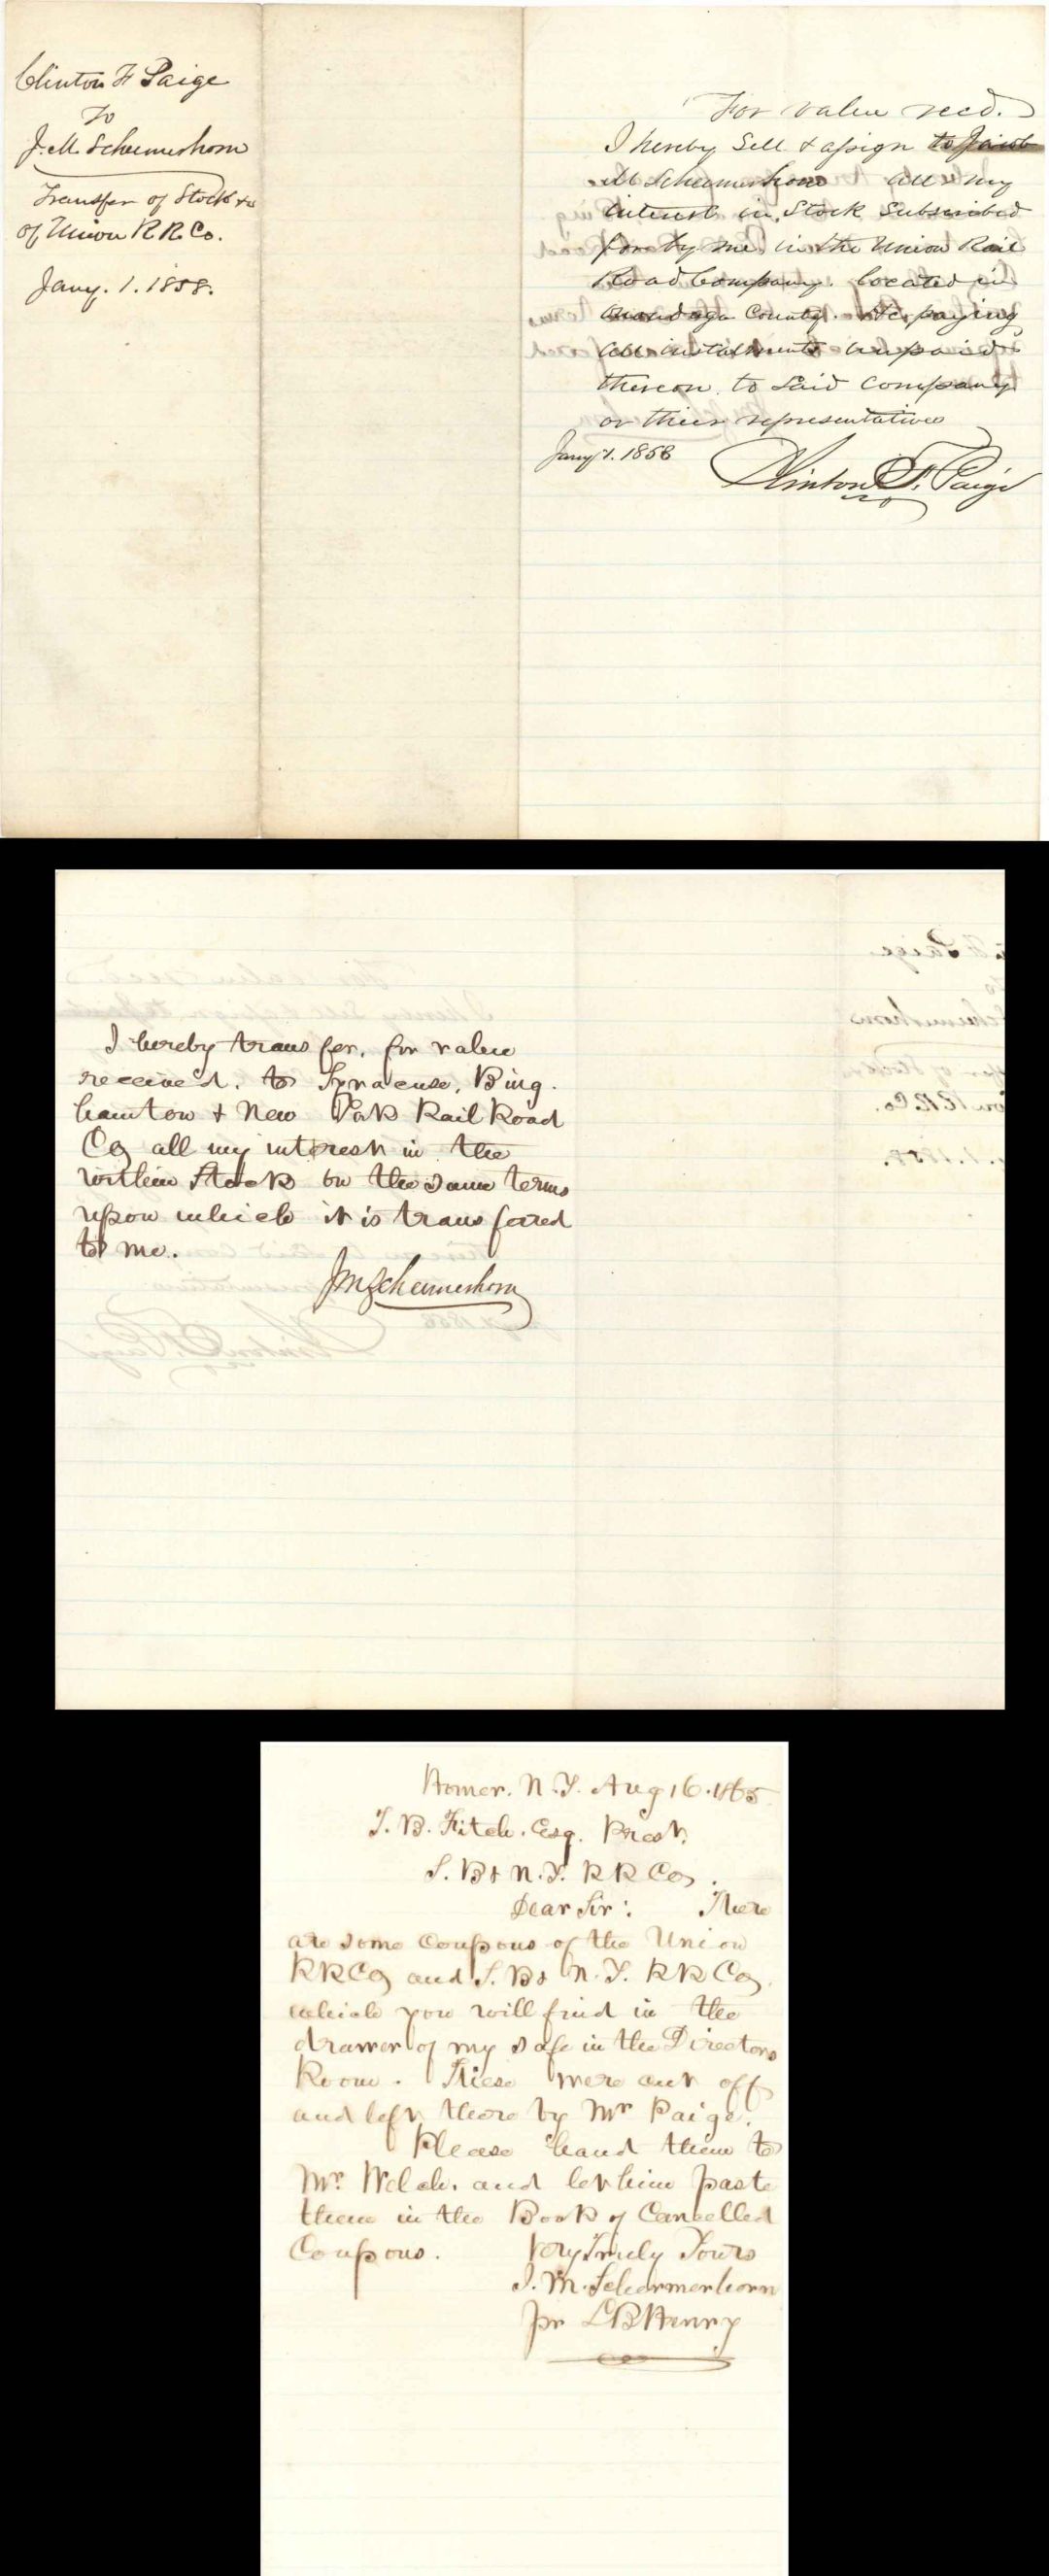 Clinton F Paige
To
J. M. Schermerhorn
Transfer of Stock &c
of Union R R. Co.
Jany. 1. 1858.
For value recd.
I hereby Sell & assign to Jacob
M Schermerhorn all my
interest in Stock Subscribed
for by me in the Union Rail
Road Company. located in
Onondaga County. He paying
all instalments unpaid
thereon to said Company
or their representatives
Jany 1. 1858
Clinton F. Paige
I hereby transfer, for value
received, to Syracuse, Bing-
hamton & New York Rail Road
Co all my interest in the
within Stock on the same terms
upon which it is transfered
to me.
J M Schermerhorn
Homer. N. Y. Aug 16. 1865
T. B. Fitch. Esq. Prest.
S. B & N. Y. R R Co.
Dear Sir: There
are some Coupons of the Union
R R Co and S. B & N. Y. R R Co.
which you will find in the
drawer of my safe in the Directors
Room. These were cut off
and left there by Mr Paige.
Please hand them to
Mr. Welch. and let him paste
them in the Book of Cancelled
Coupons. Very Truly Yours
J. M. Schermerhorn
pr L B Henry